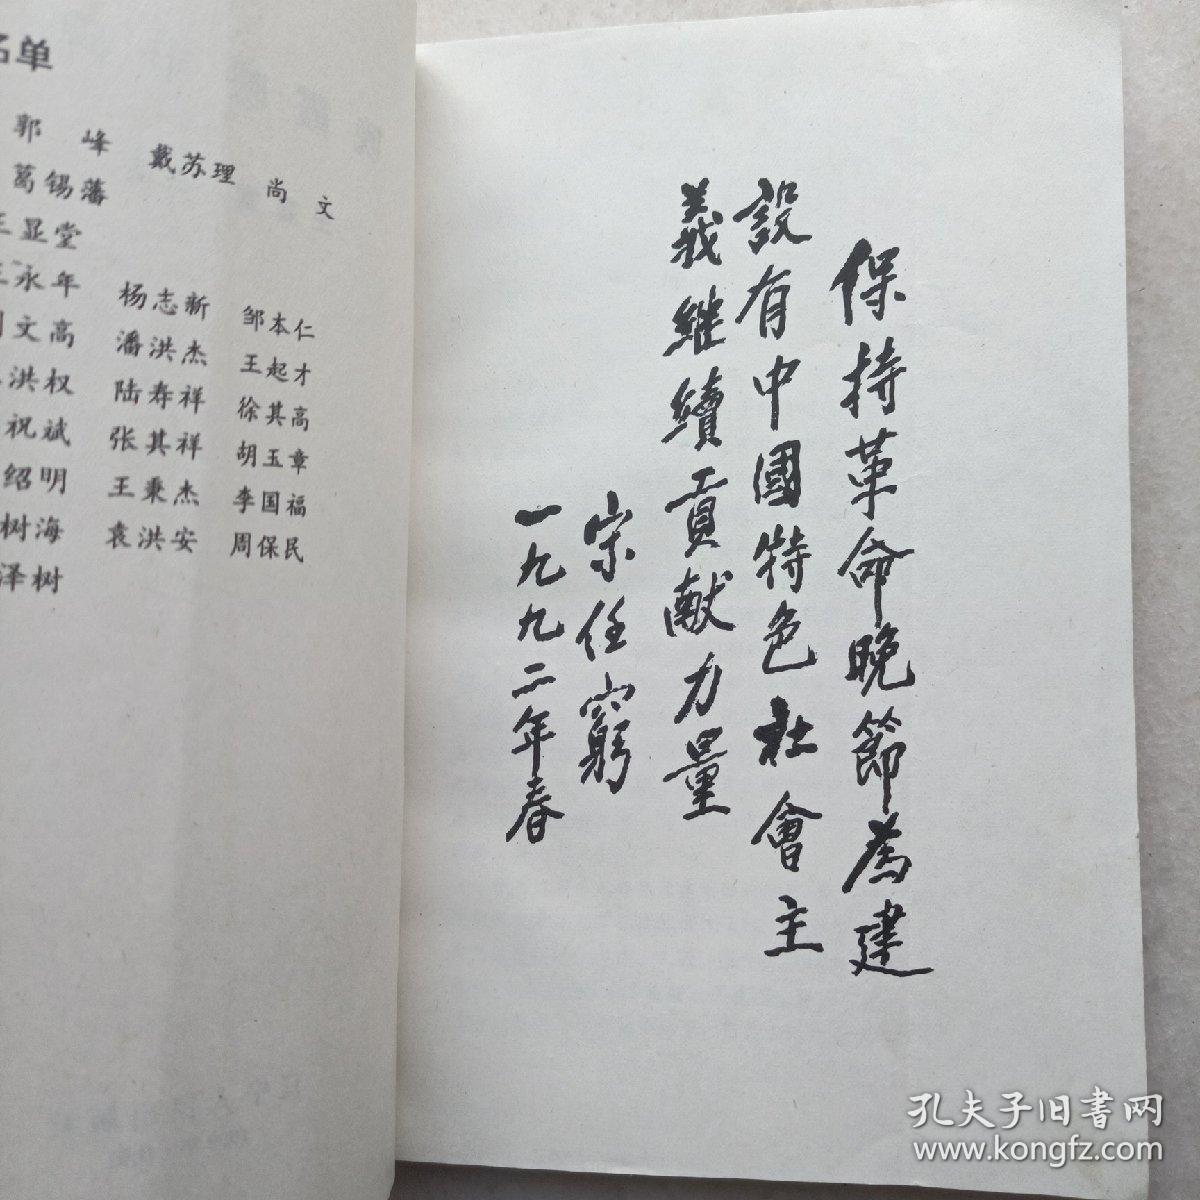 名单
郭 峰 戴苏理 尚 文
葛锡藩
王显堂
永年 杨志新 邹本仁
文高 潘洪杰 王起才
洪权 陆寿祥 徐其高
祝斌 张其祥 胡玉章
绍明 王秉杰 李国福
树海 袁洪安 周保民
泽树
保持革命晚節為建
設有中國特色社會主
義继續貢献力量
宋任窮
一九九二年春
孔夫子旧书网
www.kongfz.com